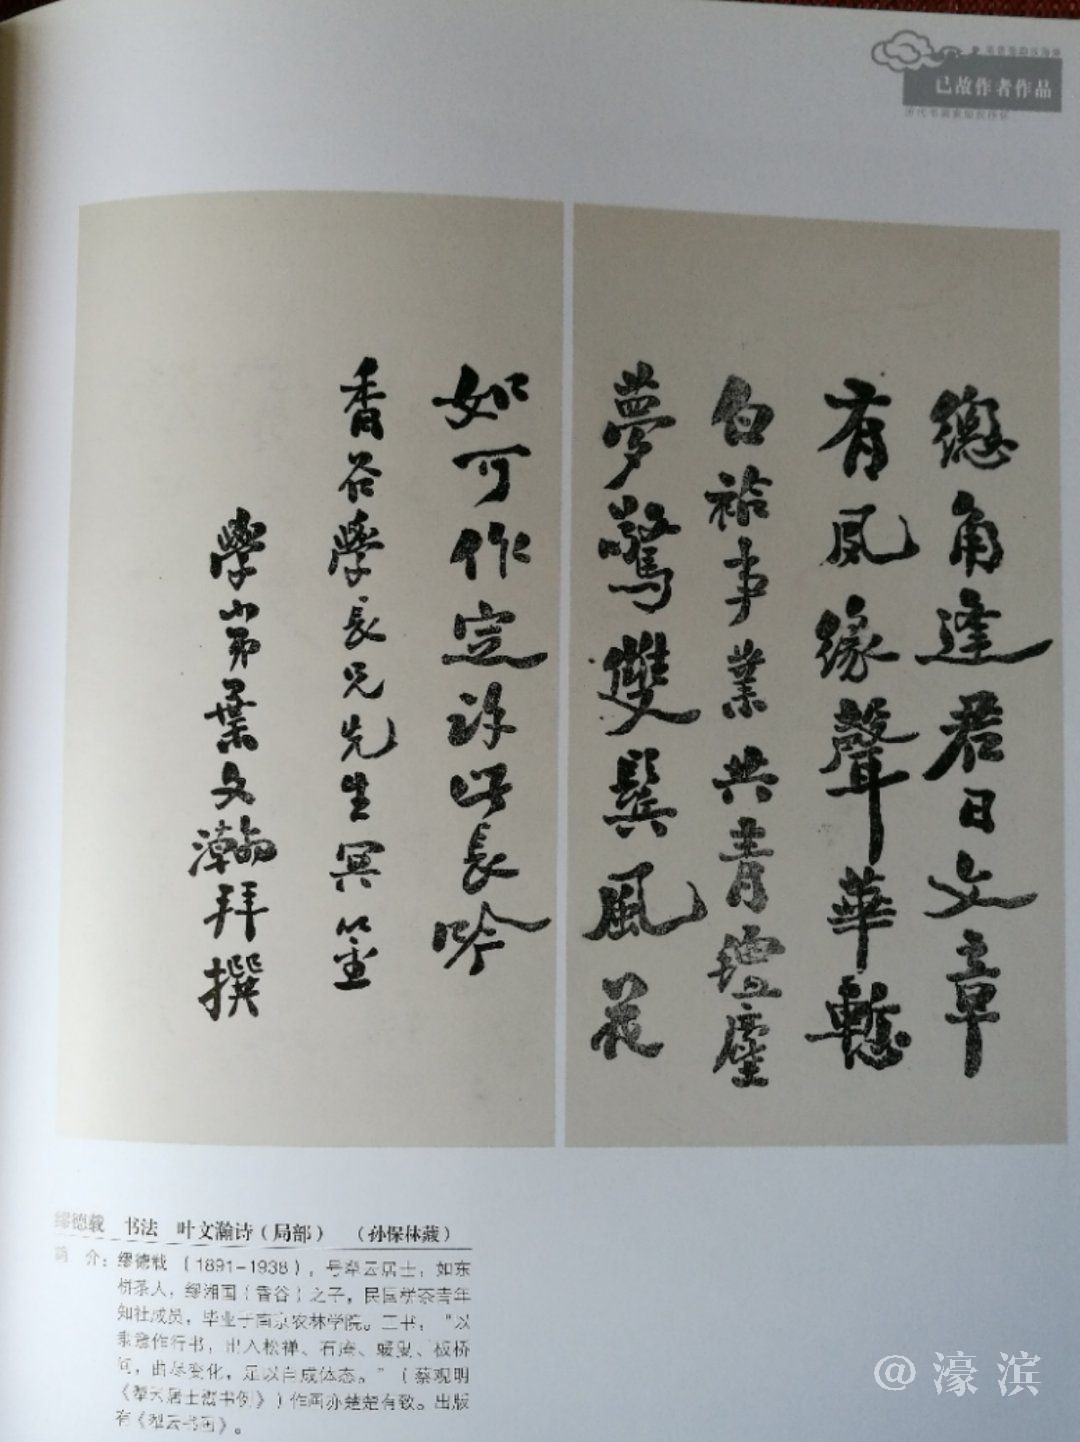 已故作者作品
總角逢君日文章
有夙緣聲華慙
白袷事業共青氊塵
夢驚雙鬢風花
如可作定許此長吟
香谷學長兄先生冥鉴
學小弟葉文瀚拜撰
缪德载 书法 叶文瀚诗（局部） （孙保林藏）
简 介：缪德载（1891-1938），号犁云居士，如东
栟茶人，缪湘国（香谷）之子，民国栟茶青年
知社成员，毕业于南京农林学院。工书，“以
隶意作行书，出入松禅、石庵、暖叟、板桥
间，曲尽变化，足以自成体态。”（蔡观明
《犁云居士鬻书例》）作画亦楚楚有致。出版
有《犁云书画》。
@濠滨